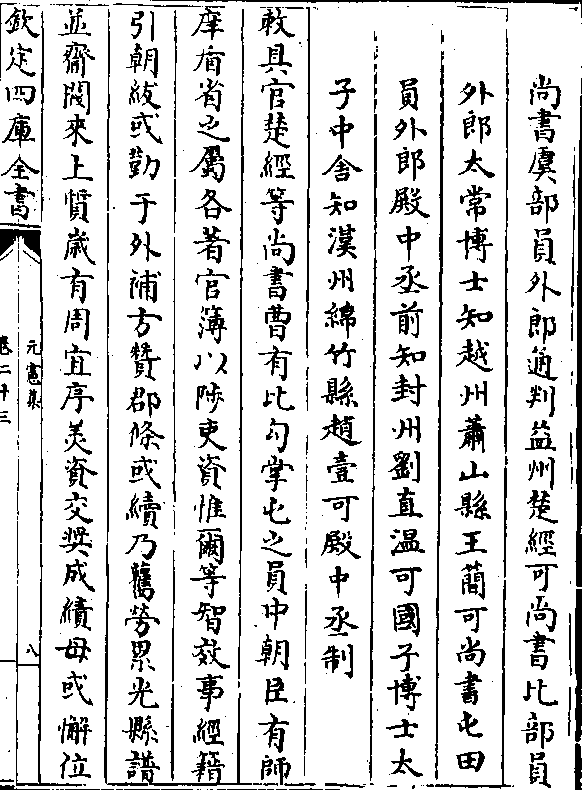 尚書虞部員外郎通判益州楚經可尚書比部員
外郎太常博士知越州蕭山縣王蕳可尚書屯田
員外郎殿中丞前知封州劉直温可國子博士太
子中舎知漢州綿竹縣趙壹可殿中丞制
敕具官楚經等尚書曹有比勾掌屯之員中朝臣有師
庠省之屬各著官簿以陟吏資惟爾等智效事經籍
引朝紱或勤于外浦方贊郡條或續乃舊勞累光縣譜
並齋閥來上質歳有周宜序美資交奨成績毋或懈位
欽定四庫全書
元憲集
卷二十三
八